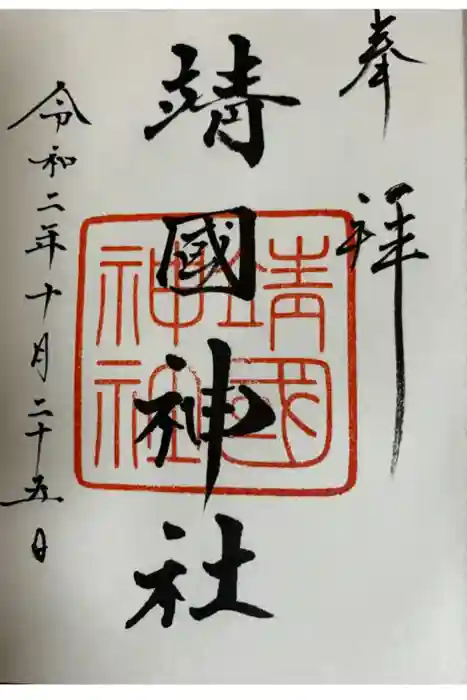 奉拝
靖國神社
靖國
神社
令和二年十月二十五日